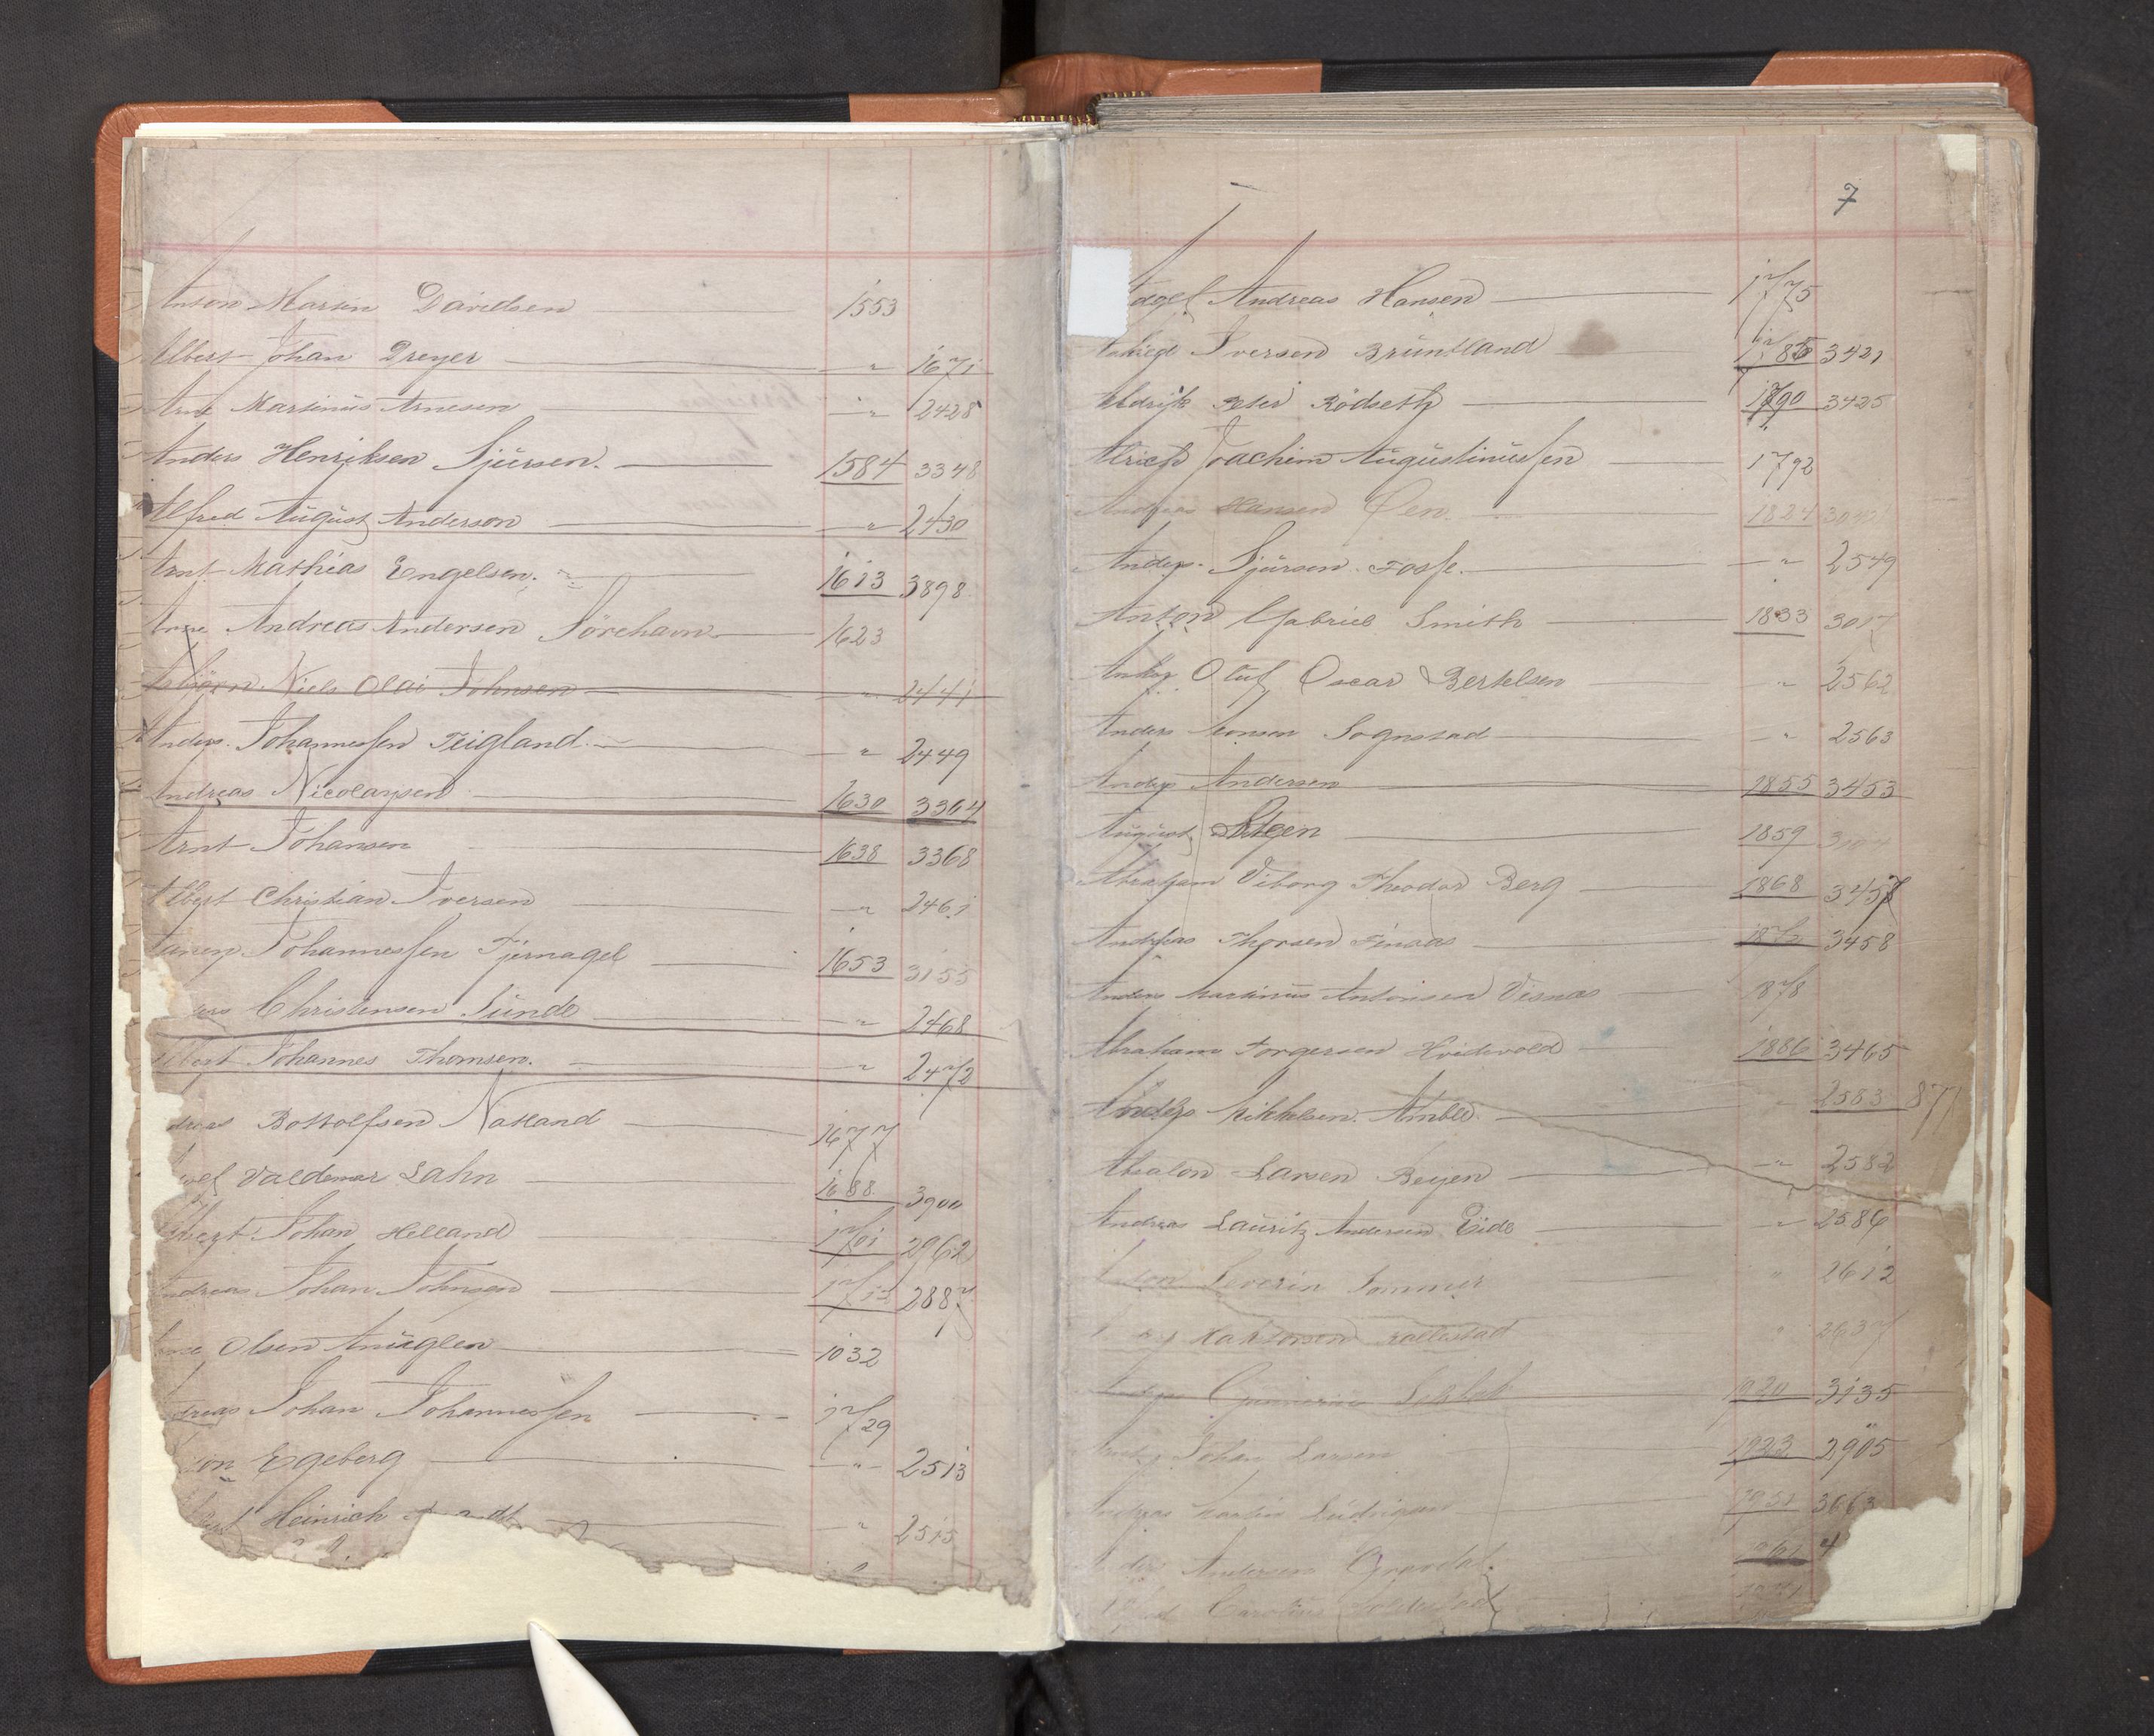 Anton Martin Davidsen 1553
Albert Johan Dreyer " 1671
Arne Martinus Arnesen " 2428
Anders Henriksen Sjursen. 1584 3348
Alfred August Anderson " 2430
Arnt Mathias Engelsen. 1613 3898
Arne Andreas Andersen Sörehavn 1623
Asbjörn Niels Olai Johnsen " 2441
Anders Johannessen Teigland " 2449
Andreas Nicolaysen 1630 3364
Arnt Johansen 1638 3368
Albert Christian Iversen " 2461
Johannessen Tjernagel 1653 3155
Christensen Sunde " 2468
Albert Johannes Thomsen. " 2472
dreas Bottolfsen Natland 1677
Valdemar Lahn 1688 3900
Johan Helland 1701 2962
Andreas Johan Johnsen 2887
Olsen Anuglen 1032
dreas Johan Johannessen 1729
Egeberg " 2513
Heinrich " 2515
7
Andreas Hansen 1775
Iversen Bruntland 1785 3421
Peter Rödseth 1790 3425
Alrich Joachim Augustinussen 1792
Andreas Hansen Øen. 1824
Anders Sjursen Fosse. " 2549
Anton Gabriel Smith 1833 3017
Oluf Oscar Bertelsen " 2562
Anders Monsen Sognstad " 2563
Anders Andersen 1855 3453
August Steen 1859
Abraham Viborg Theodor Berg 1868 3457
Andreas Thorsen Finaas 3458
Anders Martinus Antonsen Visnes 1878
Abraham Torgersen Hvidevold 1886 3465
Anders Mikkelsen Amble. " 2583 877
Absalon Larsen Beyen " 2582
Andreas Lauritz Andersen Eide " 2586
Severin Sommer " 2612
" 2637
1920 3135
Johan Larsen 1923 2905
Andreas Martin Ludvigsen 3663
Andersen